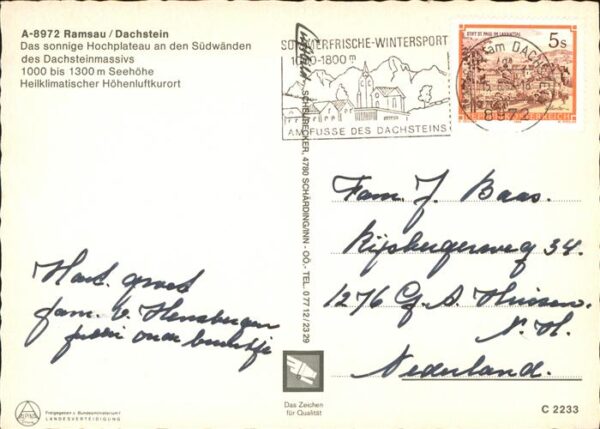 A-8972 Ramsau / Dachstein
Das sonnige Hochplateau an den Südwänden
des Dachsteinmassivs
1000 bis 1300 m Seehöhe
Heilklimatischer Höhenluftkurort
SOMMERFRISCHE-WINTERSPORT
1000-1800 m
AM FUSSE DES DACHSTEINS
am DACH
8972
STIFT ST. PAUL IM LAVANTTAL
5s
REPUBLIK ÖSTERREICH
SCHEUBECKER, 4780 SCHÄRDING/INN - OÖ., - TEL. 0 77 12 / 23 29
Fam. J. Baas.
Rijsbergerweg 34.
1276 G. A. Huizen.
N. H.
Nederland.
Hart. groet
fam. v. Hensbergen
Das Zeichen
für Qualität
ALPINA
Freigegeben v. Bundesministerium f.
LANDESVERTEIDIGUNG
C 2233